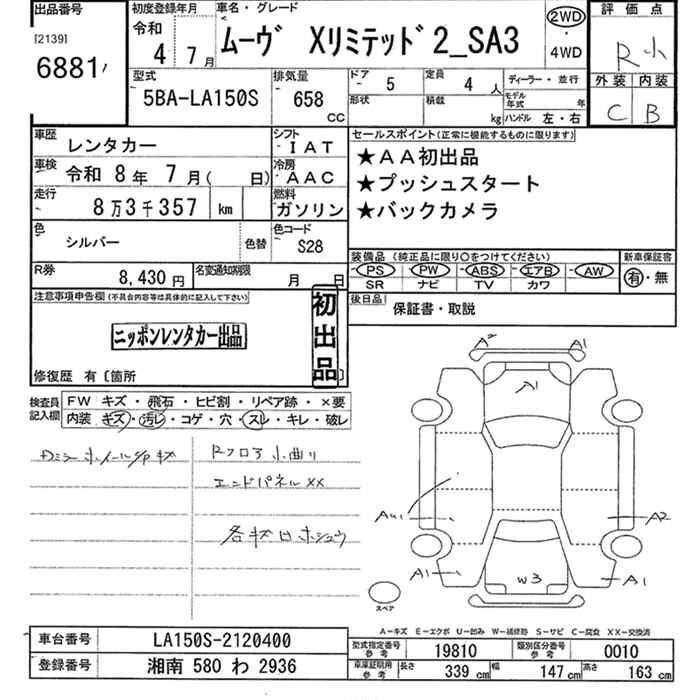 出品番号
[2139]
6881
初度登録年月
令和 4年 7月
車名・グレード
ムーヴ Xリミテッド2_SA3
2WD
・
4WD
評価点
R
外装 内装
C B
型式
5BA-LA150S
排気量
658 CC
ドア 5
定員 4人
ディーラー・並行
形状
積載 kg
モデル年式 年
ハンドル 左・右
車歴 レンタカー
シフト IAT
車検 令和 8年 7月( 日)
冷房 AAC
走行 8万3千357 km
燃料 ガソリン
色 シルバー
色替
色コード S28
R券 8,430円
名変通知期限 月 日
セールスポイント(正常に機能するものに限ります)
★AA初出品
★プッシュスタート
★バックカメラ
装備品 (純正品に限り○をつけてください)
PS PW ABS エアB AW
SR ナビ TV カワ
新車保証書
有・無
後日品 保証書・取説
注意事項申告欄(不具合内容等は具体的に記入して下さい)
ニッポンレンタカー出品
初出品
修復歴 有〔箇所
検査員記入欄
FW キズ・飛石・ヒビ割・リペア跡・×要
内装 キズ・汚レ・コゲ・穴・スレ・キレ・破レ
Rフロア小曲り
エンドパネルXX
A2 A1
A1
A2
A1 W3 A1
スペア
A-キズ E-エクボ U-凹み W-補修跡 S-サビ C-腐食 XX-交換済
車台番号 LA150S-2120400
登録番号 湘南 580 わ 2936
型式指定番号 参考 19810
類別区分番号 参考 0010
車庫証明用 参考 長さ 339 cm 幅 147 cm 高さ 163 cm